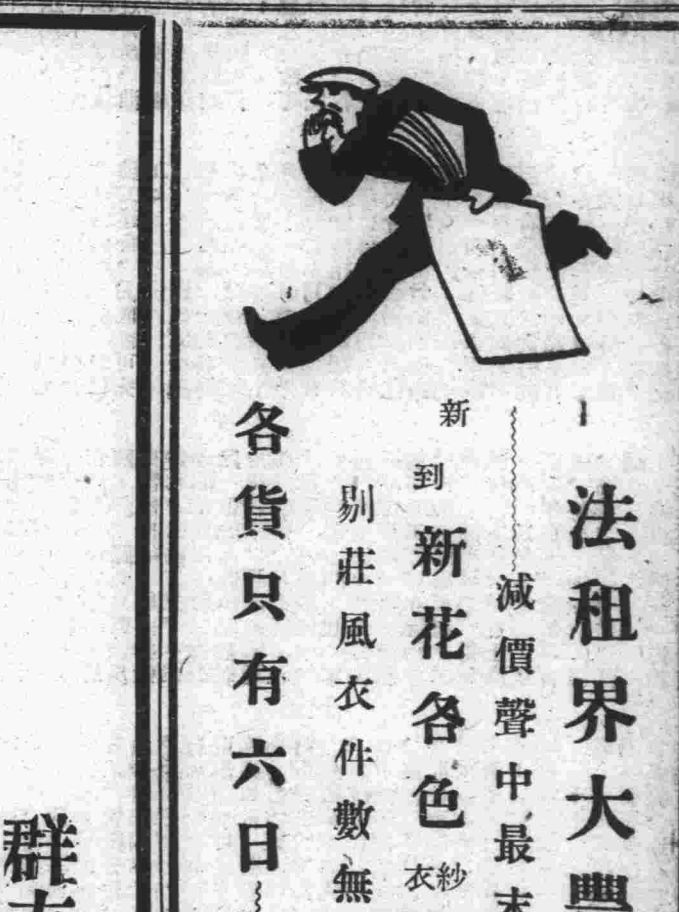 法租界大
減價聲中最
新到新花各色
紗衣
剔莊風衣件數無
各貨只有六日
群